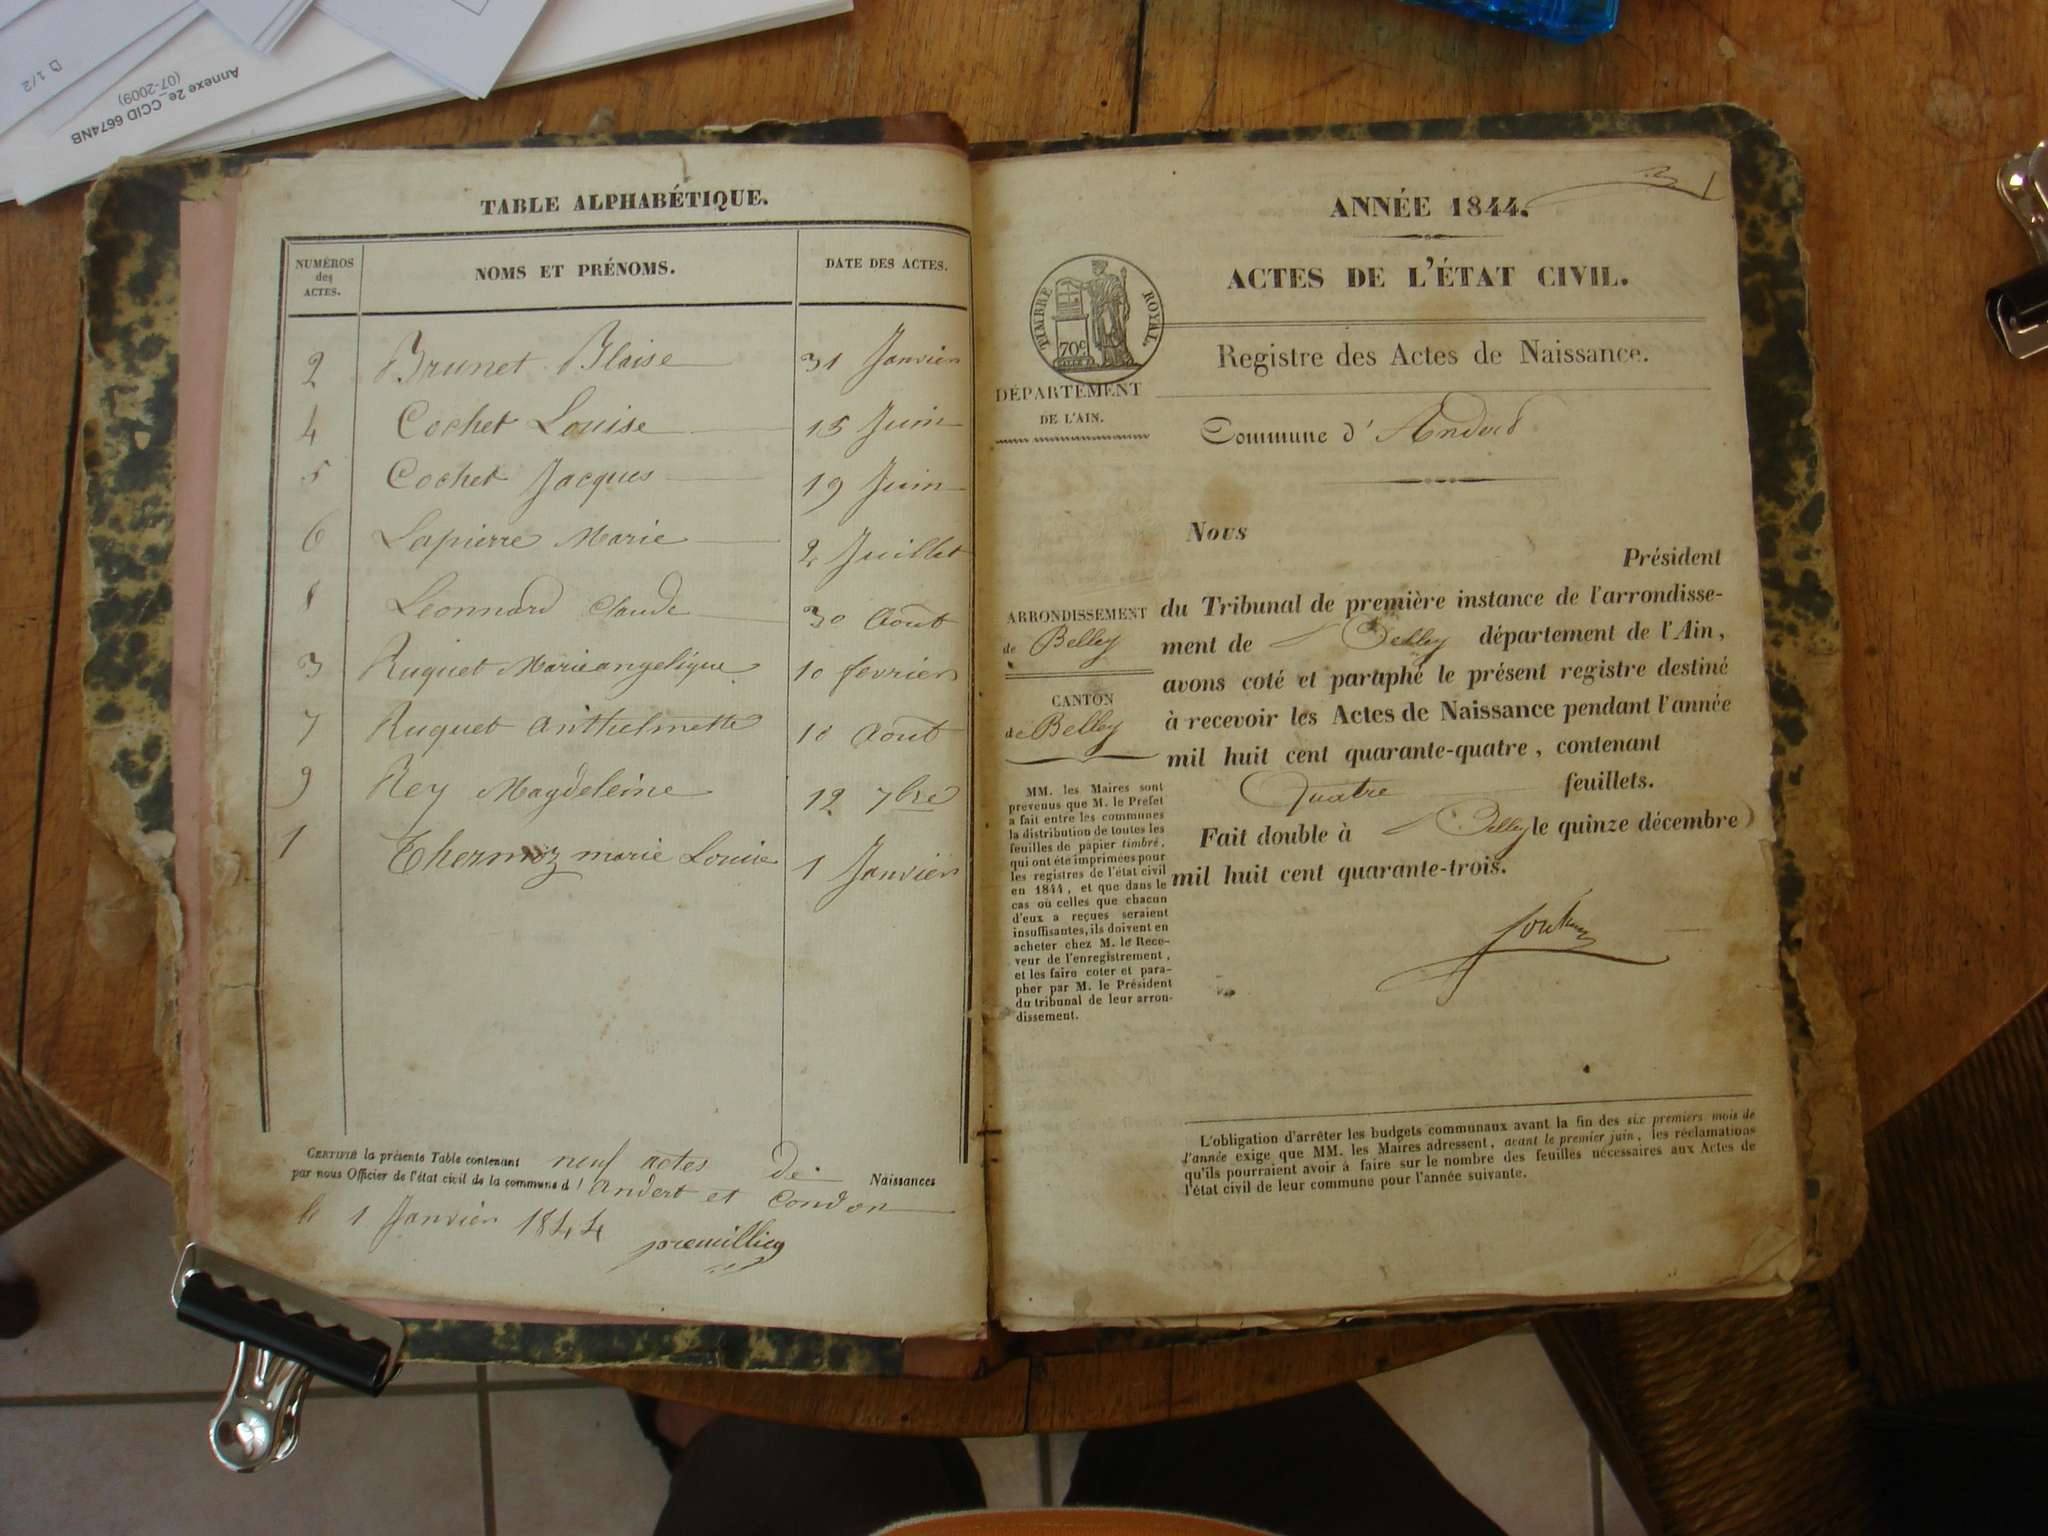 1/2
Annexe 2e_CCID 6674NB
(07-2009)
TABLE ALPHABÉTIQUE.
NUMÉROS des ACTES.
NOMS ET PRÉNOMS.
DATE DES ACTES.
2 Brunet Blaise 31 Janvier
4 Cochet Louise 15 Juin
5 Cochet Jacques 19 Juin
6 Lapierre Marie 2 Juillet
8 Leonnard Claude 30 Aout
3 Ruquet Marieangelique 10 fevrier
7 Ruquet Anthelmette 10 Aout
9 Rey Magdeleine 12 7bre
1 Thermoz marie Louise 1 Janvier
CERTIFIÉ la présente Table contenant neuf actes de Naissances
par nous Officier de l'état civil de la commune d' Andert et Condon
le 1 Janvier 1844
ANNÉE 1844.
1
ACTES DE L'ÉTAT CIVIL.
TIMBRE ROYAL.
70c
Registre des Actes de Naissance.
DÉPARTEMENT
DE L'AIN.
Commune d'Andert
Nous
Président
du Tribunal de première instance de l'arrondisse-
ment de Belley département de l'Ain,
avons coté et paraphé le présent registre destiné
à recevoir les Actes de Naissance pendant l'année
mil huit cent quarante-quatre, contenant
Quatre feuillets.
Fait double à Belley le quinze décembre
mil huit cent quarante-trois.
ARRONDISSEMENT
de Belley
CANTON
de Belley
MM. les Maires sont
prévenus que M. le Préfet
a fait entre les communes
la distribution de toutes les
feuilles de papier timbré,
qui ont été imprimées pour
les registres de l'état civil
en 1844, et que dans le
cas où celles que chacun
d'eux a reçues seraient
insuffisantes, ils doivent en
acheter chez M. le Rece-
veur de l'enregistrement,
et les faire coter et para-
pher par M. le Président
du tribunal de leur arron-
dissement.
L'obligation d'arrêter les budgets communaux avant la fin des six premiers mois de
l'année exige que MM. les Maires adressent, avant le premier juin, les réclamations
qu'ils pourraient avoir à faire sur le nombre des feuilles nécessaires aux Actes de
l'état civil de leur commune pour l'année suivante.